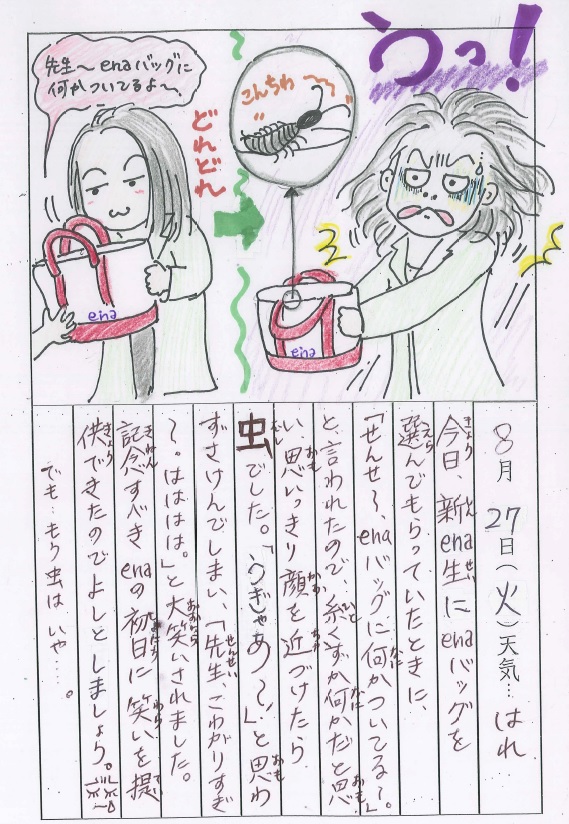 うっ！
先生〜enaバッグに
何かついてるよ〜、
どれどれ
こんちわ〜
ena
ena
8月27日（火）天気…はれ
今日、新ena生にenaバッグを
選んでもらっていたときに、
「せんせ〜、enaバッグに何かついてる〜。」
と、言われたので、糸くずか何かだと思
い、思いっきり顔を近づけたら
虫でした。「うぎゃあ〜！」と思わ
ずさけんでしまい、「先生、こわがりすぎ
〜。ははは。」と大笑いされました。
記念すべきenaの初日に笑いを提
供できたのでよしとしましょう。
でも…もう虫はいや……。